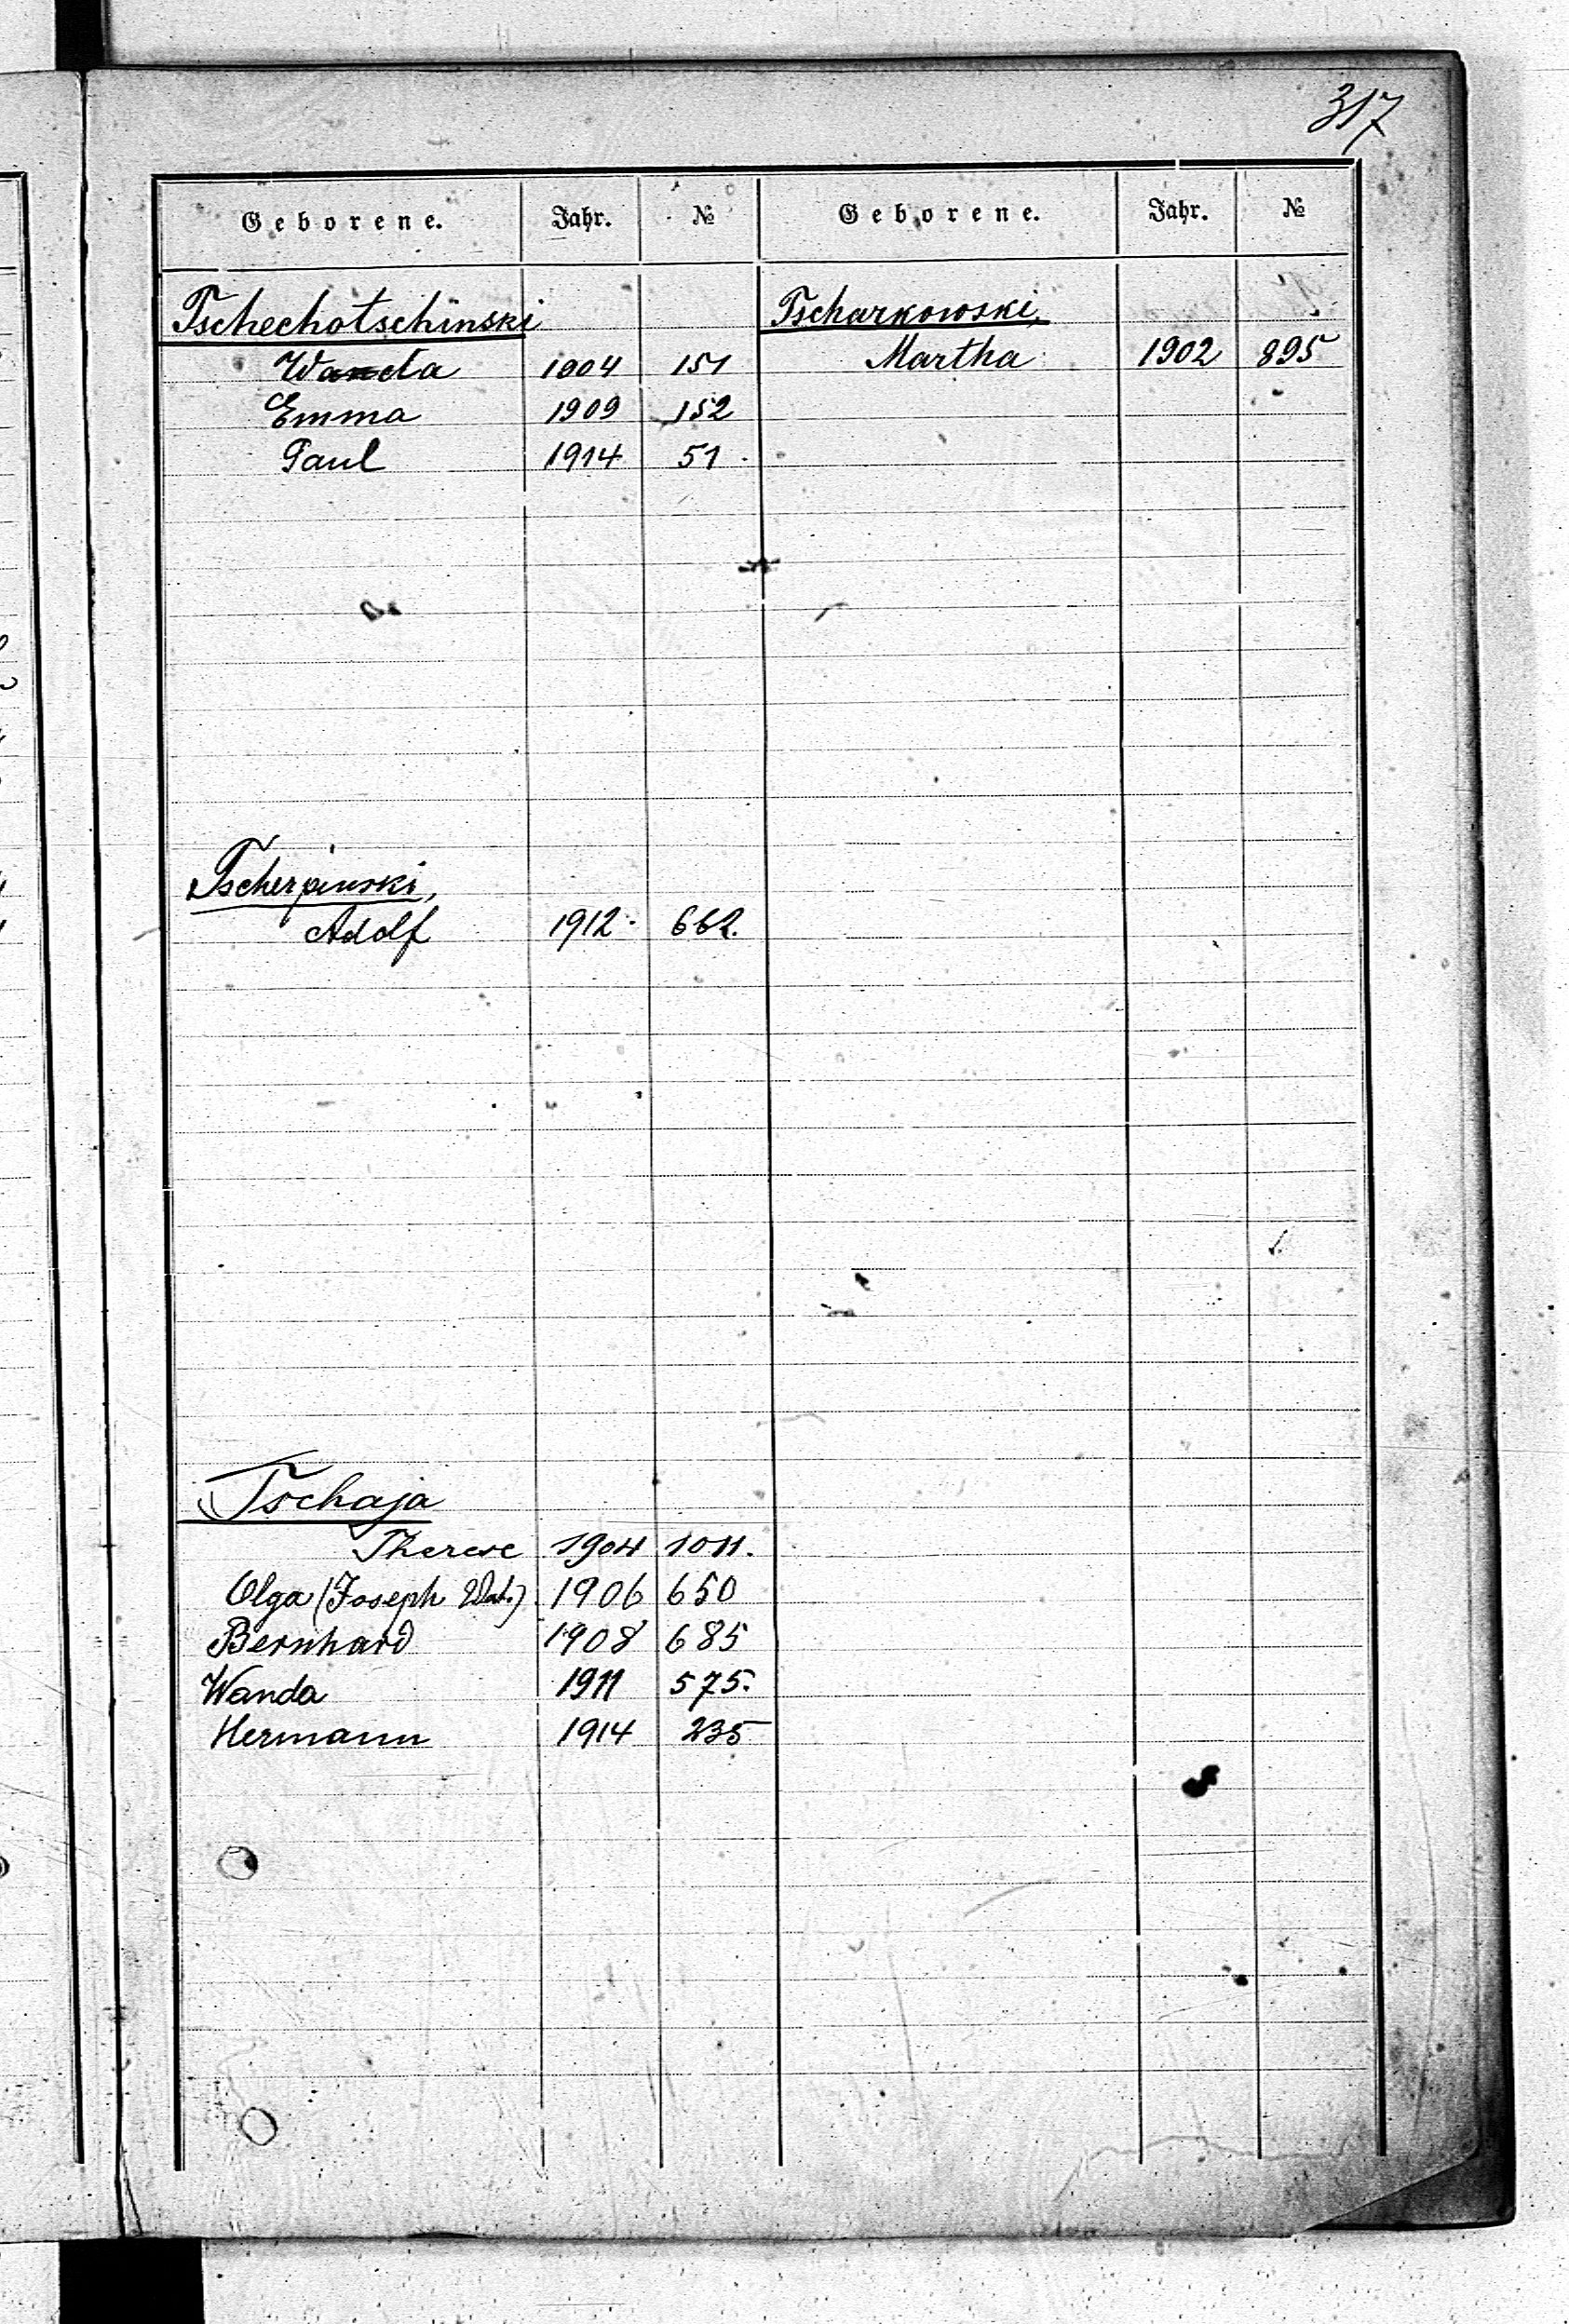 317
Geborene. Jahr. № Geborene. Jahr. №
Tschechotschinski
Wanda 1904 151
Emma 1909 152
Paul 1914 51
Tscherpinski,
Adolf 1912 662.
Tschaja
Therese 1904 1011.
Olga (Joseph 1906 650
Bernhard 1908 685
Wanda 1911 575.
Hermann 1914 235
Tscharkowski,
Martha 1902 895